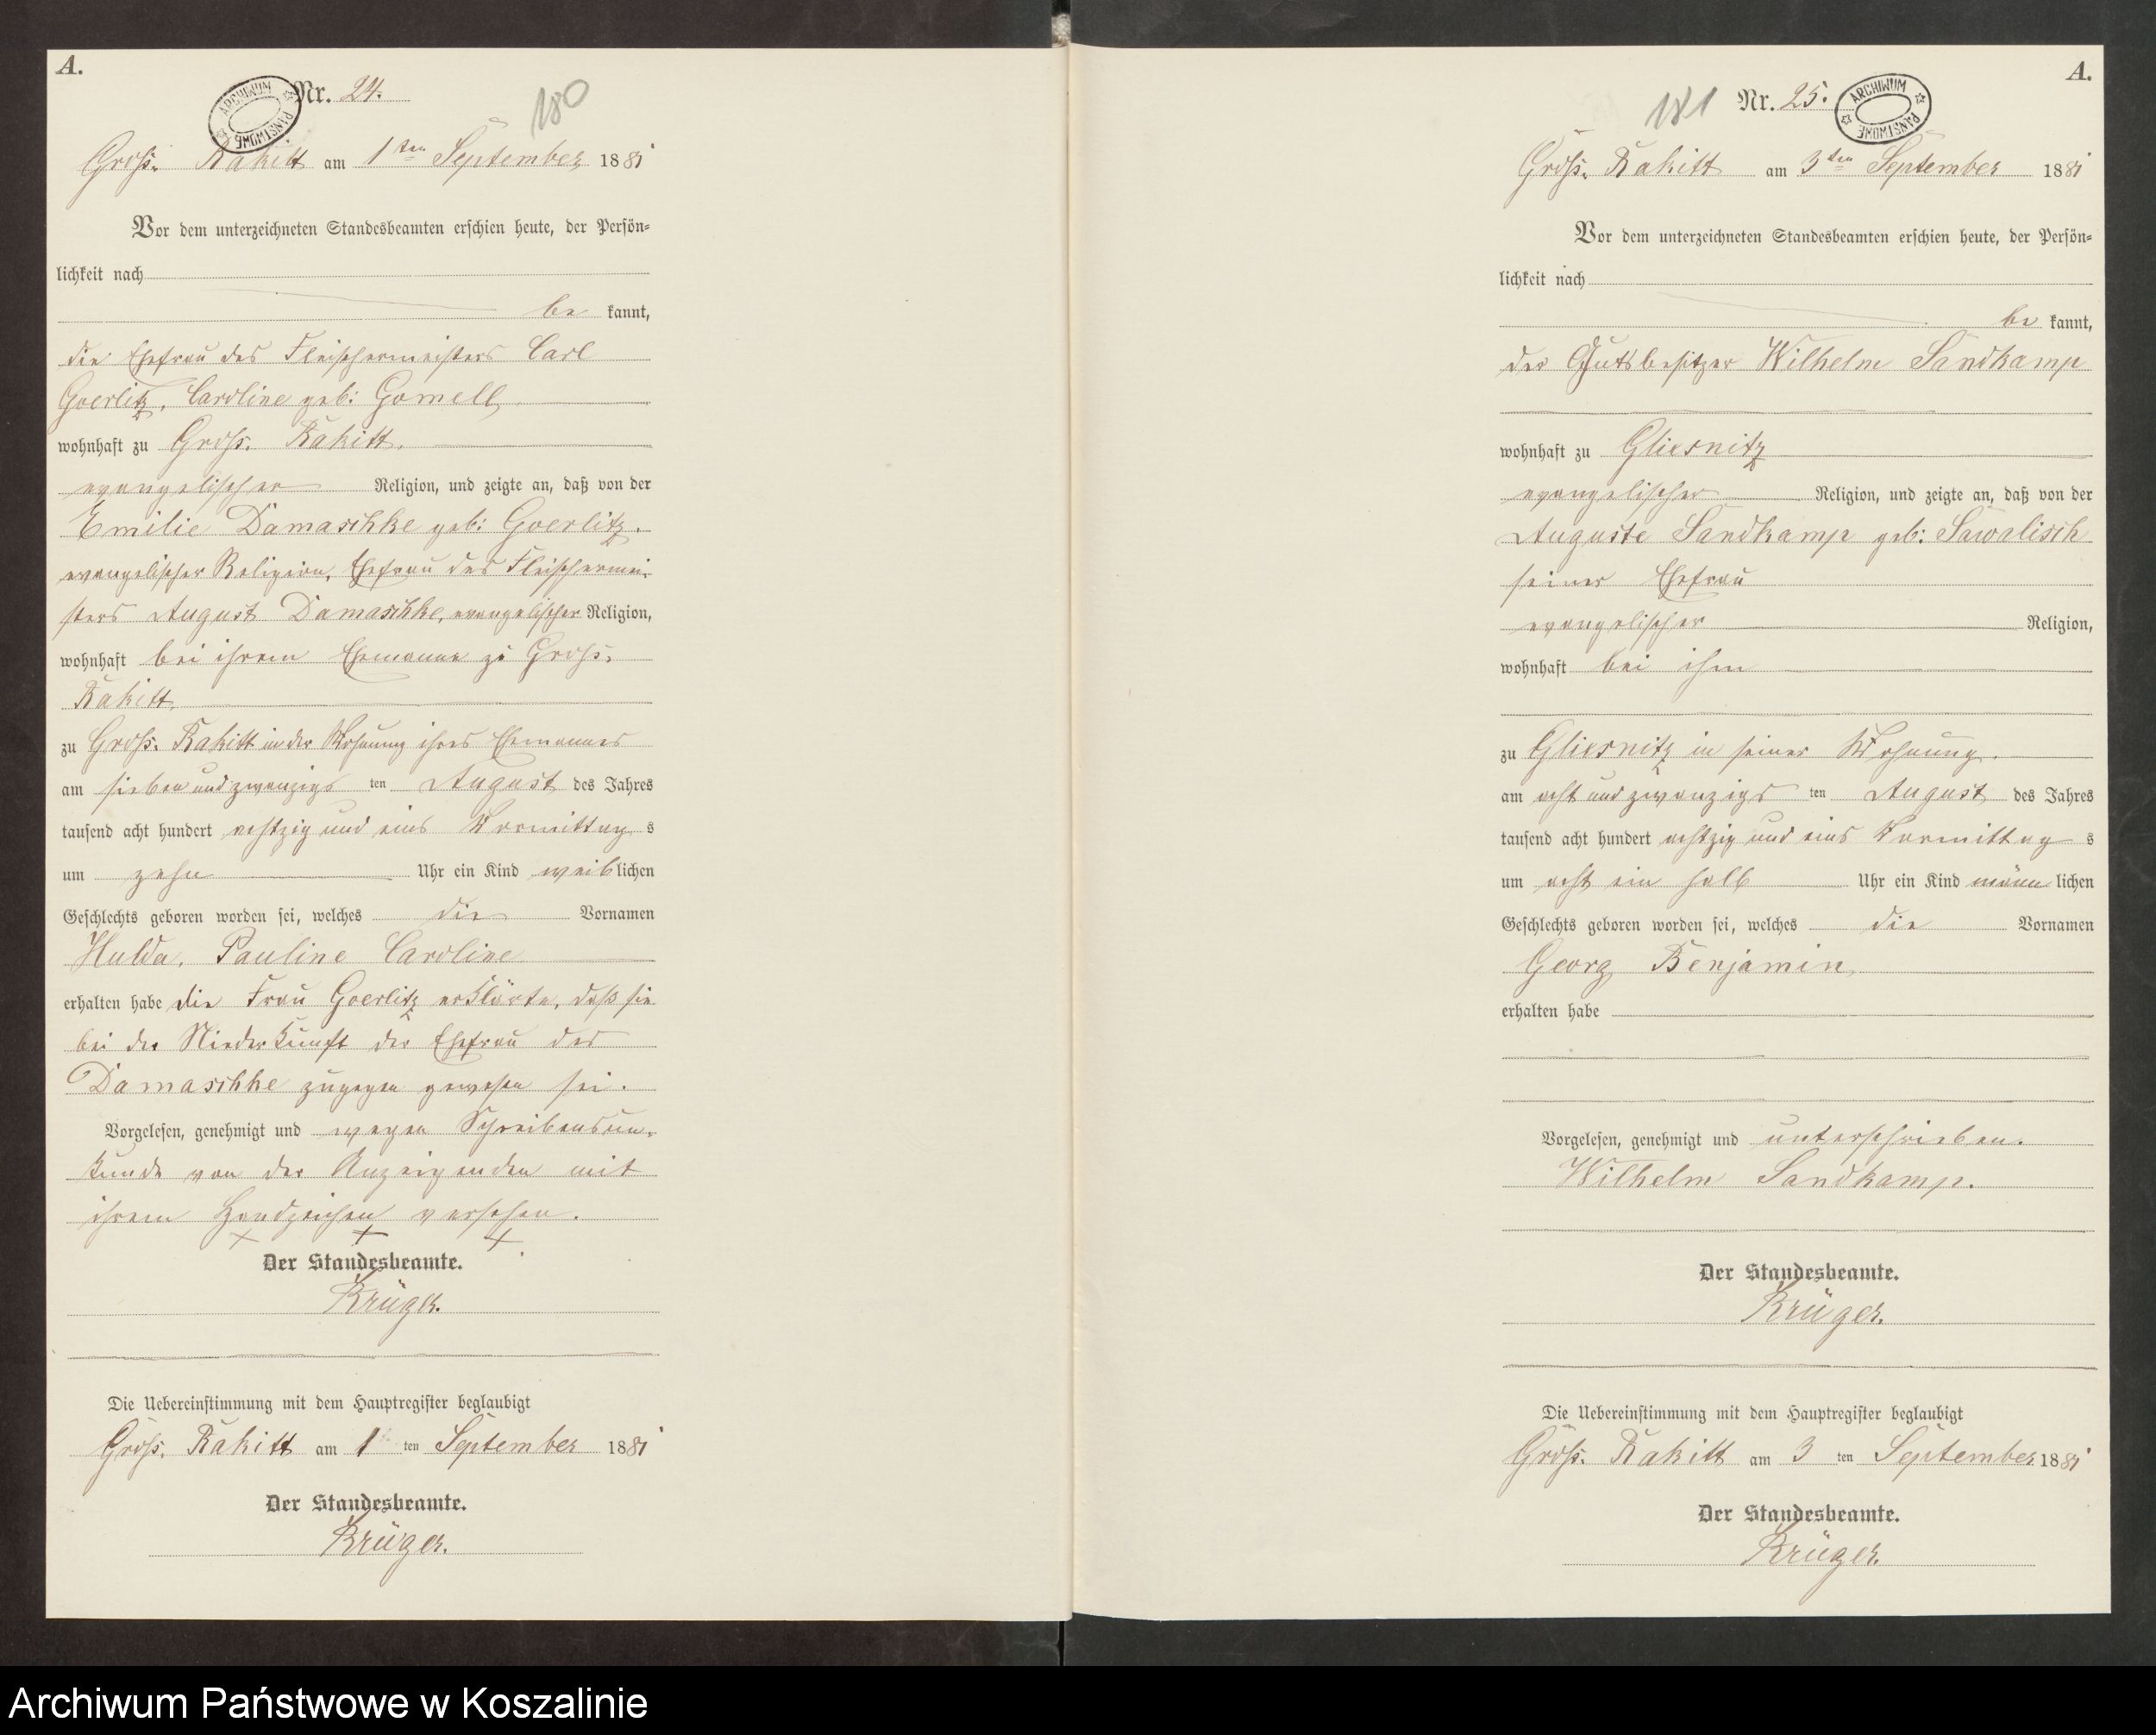 A.
Nr. 24.
ARCHIWUM PAŃSTWOWE
180
Groß. Rakitt am 1ten September 1881
Vor dem unterzeichneten Standesbeamten erschien heute, der Persön-
lichkeit nach
be kannt,
die Ehefrau des Fleischermeisters Carl
Goerlitz, Caroline geb: Gomell,
wohnhaft zu Groß. Rakitt,
evangelischer Religion, und zeigte an, daß von der
Emilie Damaschke geb: Goerlitz.
evangelischer Religion, Ehefrau des Fleischermei-
sters August Damaschke, evangelischer Religion,
wohnhaft bei ihrem Ehemanne zu Groß.
Rakitt,
zu Groß. Rakitt in der Wohnung ihres Ehemannes
am sieben und zwanzigs ten August des Jahres
tausend acht hundert achtzig und eins Vormittag s
um zehn Uhr ein Kind weib lichen
Geschlechts geboren worden sei, welches die Vornamen
Hulda, Pauline Caroline
erhalten habe die Frau Goerlitz erklärte, daß sie
bei der Niederkunft der Ehefrau des
Damaschke zugegen gewesen sei.
Vorgelesen, genehmigt und wegen Schreibensun-
kunde von der Anzeigenden mit
ihrem Handzeichen versehen.
+ + +
Der Standesbeamte.
Krüger.
Die Uebereinstimmung mit dem Hauptregister beglaubigt
Groß. Rakitt am 1 ten September 1881
Der Standesbeamte.
Krüger.
A.
Nr. 25.
ARCHIWUM PAŃSTWOWE
181
Groß. Rakitt am 3ten September 1881
Vor dem unterzeichneten Standesbeamten erschien heute, der Persön-
lichkeit nach
be kannt,
der Gutsbesitzer Wilhelm Sandkamp
wohnhaft zu Gliesnitz
evangelischer Religion, und zeigte an, daß von der
Auguste Sandkamp geb: Sawalisch
seiner Ehefrau
evangelischer Religion,
wohnhaft bei ihm
zu Gliesnitz in seiner Wohnung.
am acht und zwanzigs ten August des Jahres
tausend acht hundert achtzig und eins Vormittag s
um acht ein halb Uhr ein Kind männ lichen
Geschlechts geboren worden sei, welches die Vornamen
Georg Benjamin,
erhalten habe
Vorgelesen, genehmigt und unterschrieben.
Wilhelm Sandkamp.
Der Standesbeamte.
Krüger.
Die Uebereinstimmung mit dem Hauptregister beglaubigt
Groß. Rakitt am 3 ten September 1881
Der Standesbeamte.
Krüger.
Archiwum Państwowe w Koszalinie